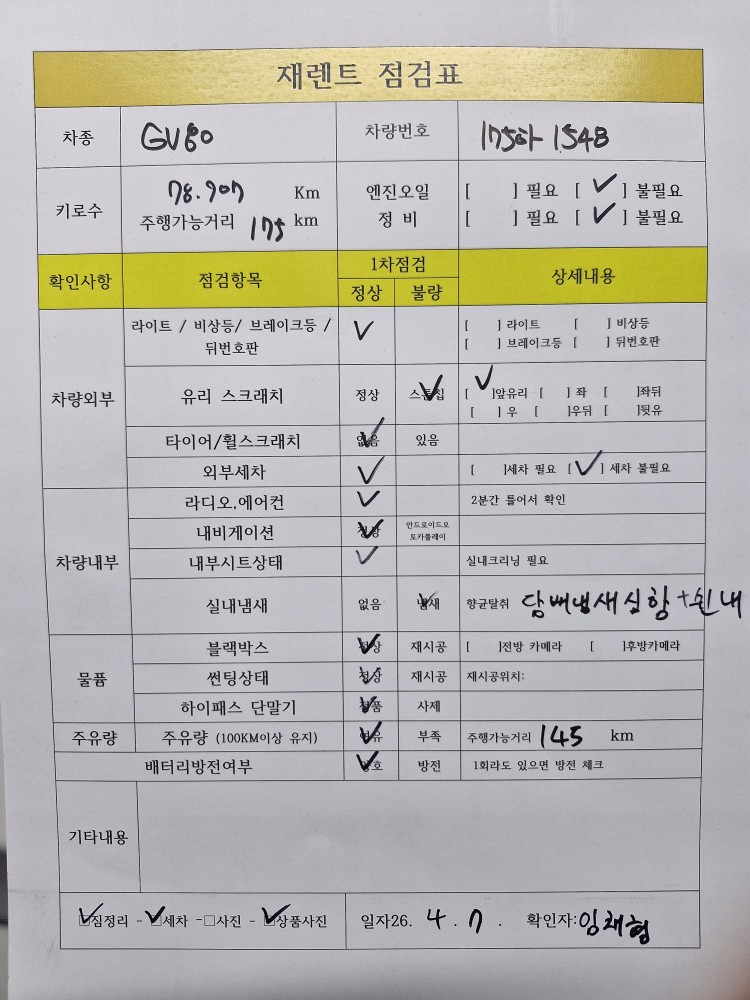 재렌트 점검표
차종 GV80 차량번호 175하 1548
키로수 78.707 Km 엔진오일 [ ] 필요 [ ✓ ] 불필요
주행가능거리 175 km 정 비 [ ] 필요 [ ✓ ] 불필요
확인사항 점검항목 1차점검 상세내용
정상 불량
차량외부
라이트 / 비상등/ 브레이크등 / 뒤번호판 ✓ [ ] 라이트 [ ] 비상등
[ ] 브레이크등 [ ] 뒤번호판
유리 스크래치 정상 스톤칩 ✓ [ ✓ ]앞유리 [ ] 좌 [ ]좌뒤
[ ] 우 [ ]우뒤 [ ]뒷유
타이어/휠스크래치 없음 ✓ 있음
외부세차 ✓ [ ]세차 필요 [ ✓ ] 세차 불필요
차량내부
라디오,에어컨 ✓ 2분간 틀어서 확인
내비게이션 정상 ✓ 안드로이드오
토카플레이
내부시트상태 ✓ 실내크리닝 필요
실내냄새 없음 냄새 ✓ 향균탈취 담배냄새심함+쉰내
물품
블랙박스 정상 ✓ 재시공 [ ]전방 카메라 [ ]후방카메라
썬팅상태 정상 ✓ 재시공 재시공위치:
하이패스 단말기 정품 ✓ 사제
주유량 주유량 (100KM이상 유지) 여유 ✓ 부족 주행가능거리 145 km
배터리방전여부 양호 ✓ 방전 1회라도 있으면 방전 체크
기타내용
☑짐정리 - ☑세차 -□사진 - ☑상품사진 일자26. 4 . 7 . 확인자:임채형